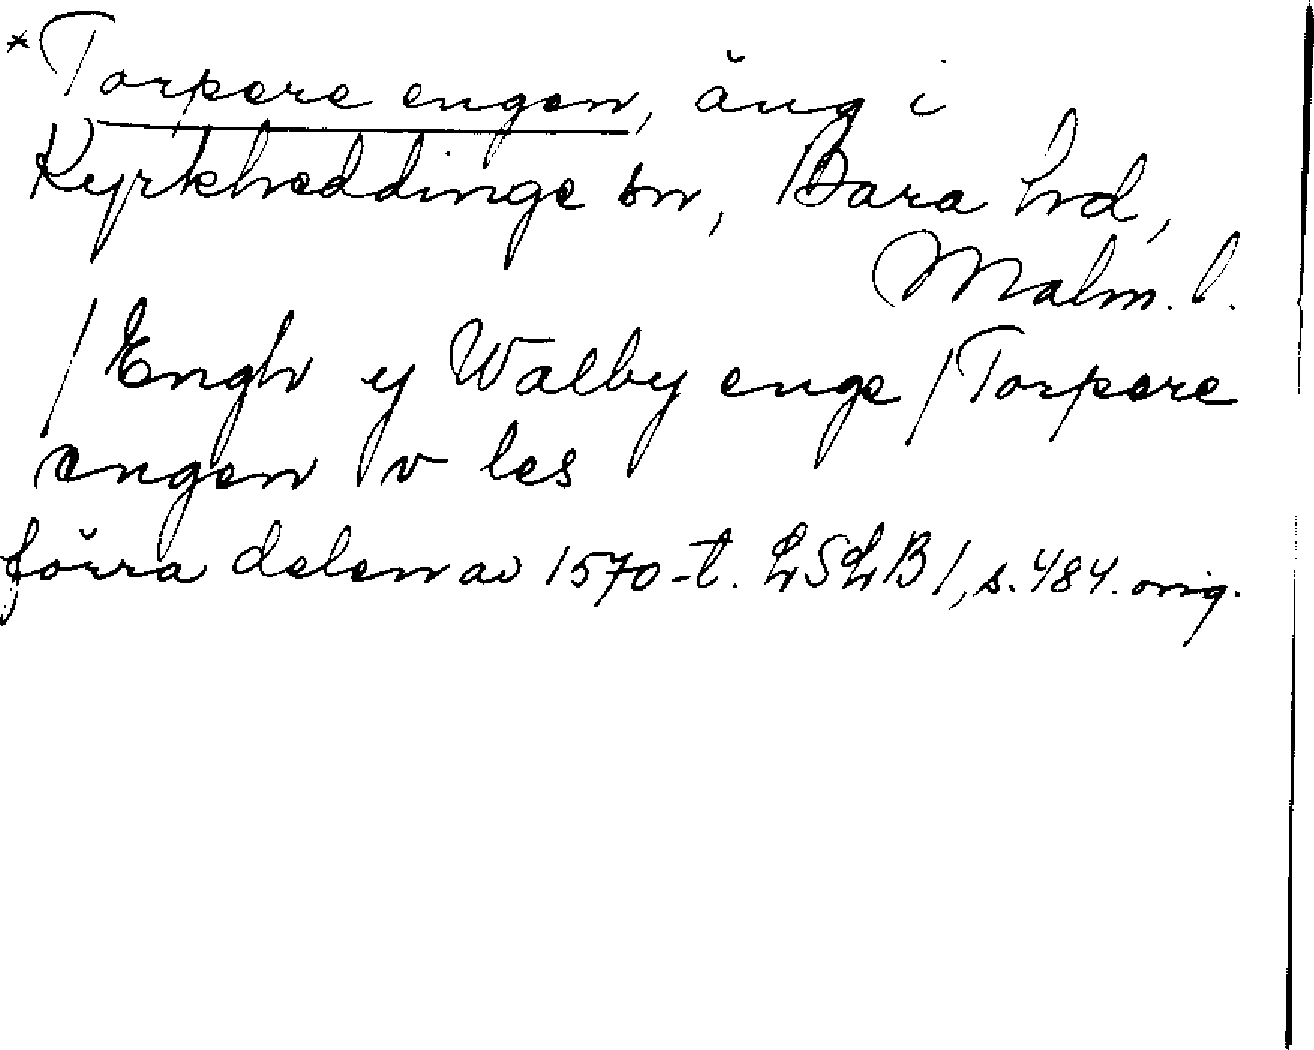 *Torpere engen, äng i
Kyrkheddinge sn, Bara hd,
Malm. l.
/Engh y Walby enge/Torpere
engen v les
förra delen av 1570-t. LSLB1, s. 484. orig.